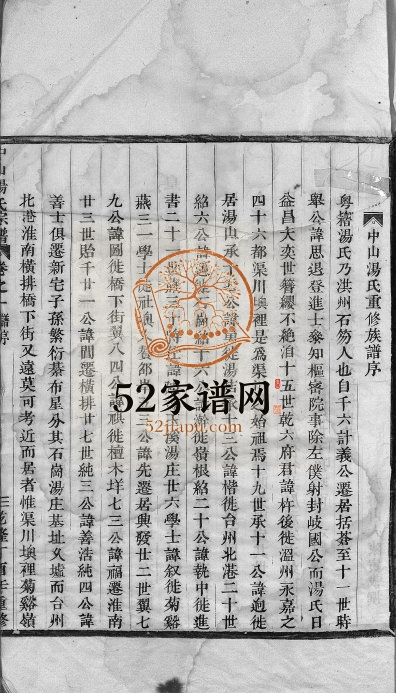 中山湯氏重修族譜序
粵稽湯氏乃洪州石芴人也自千六計義公遷居括蒼至十一世時
舉公諱思退登進士叅知樞密院事除左僕射封岐國公而湯氏日
益昌大奕世簪纓不絶洎十五世乾六府君諱杵後徙溫州永嘉之
四十六都渠川墺裡是爲渠 始祖焉十九世承十一公諱逈徙
居湯山承 公諱 徙湯 三公諱楷徙台州北港二十世
紹六公諱 徙 尚紹十六公諱 徙嶺根紹二十公諱執中徙進
書二十一世 三十 諱 溪湯庄廿六學士諱叙徙菊谿
燕三一學士 徙社墺 賛邵 公諱先遷居興發廿二世翼七
九公諱圖徙橋下街翼八四公諱祺徙檀木垟七三公諱福遷淮南
廿三世貽千廿一公諱閏遷橫排廿七世純三公諱善浩純四公諱
善士俱遷新宅子孫繁衍棊布星分其石崗湯庄基址乆墟而台州
北港淮南橫排橋下街又遠莫可考近而居者惟渠川墺裡菊谿嶺
中山湯氏宗譜 卷之一 譜序
三 乾隆丁酉年重修
52家谱网
52jiapu.com